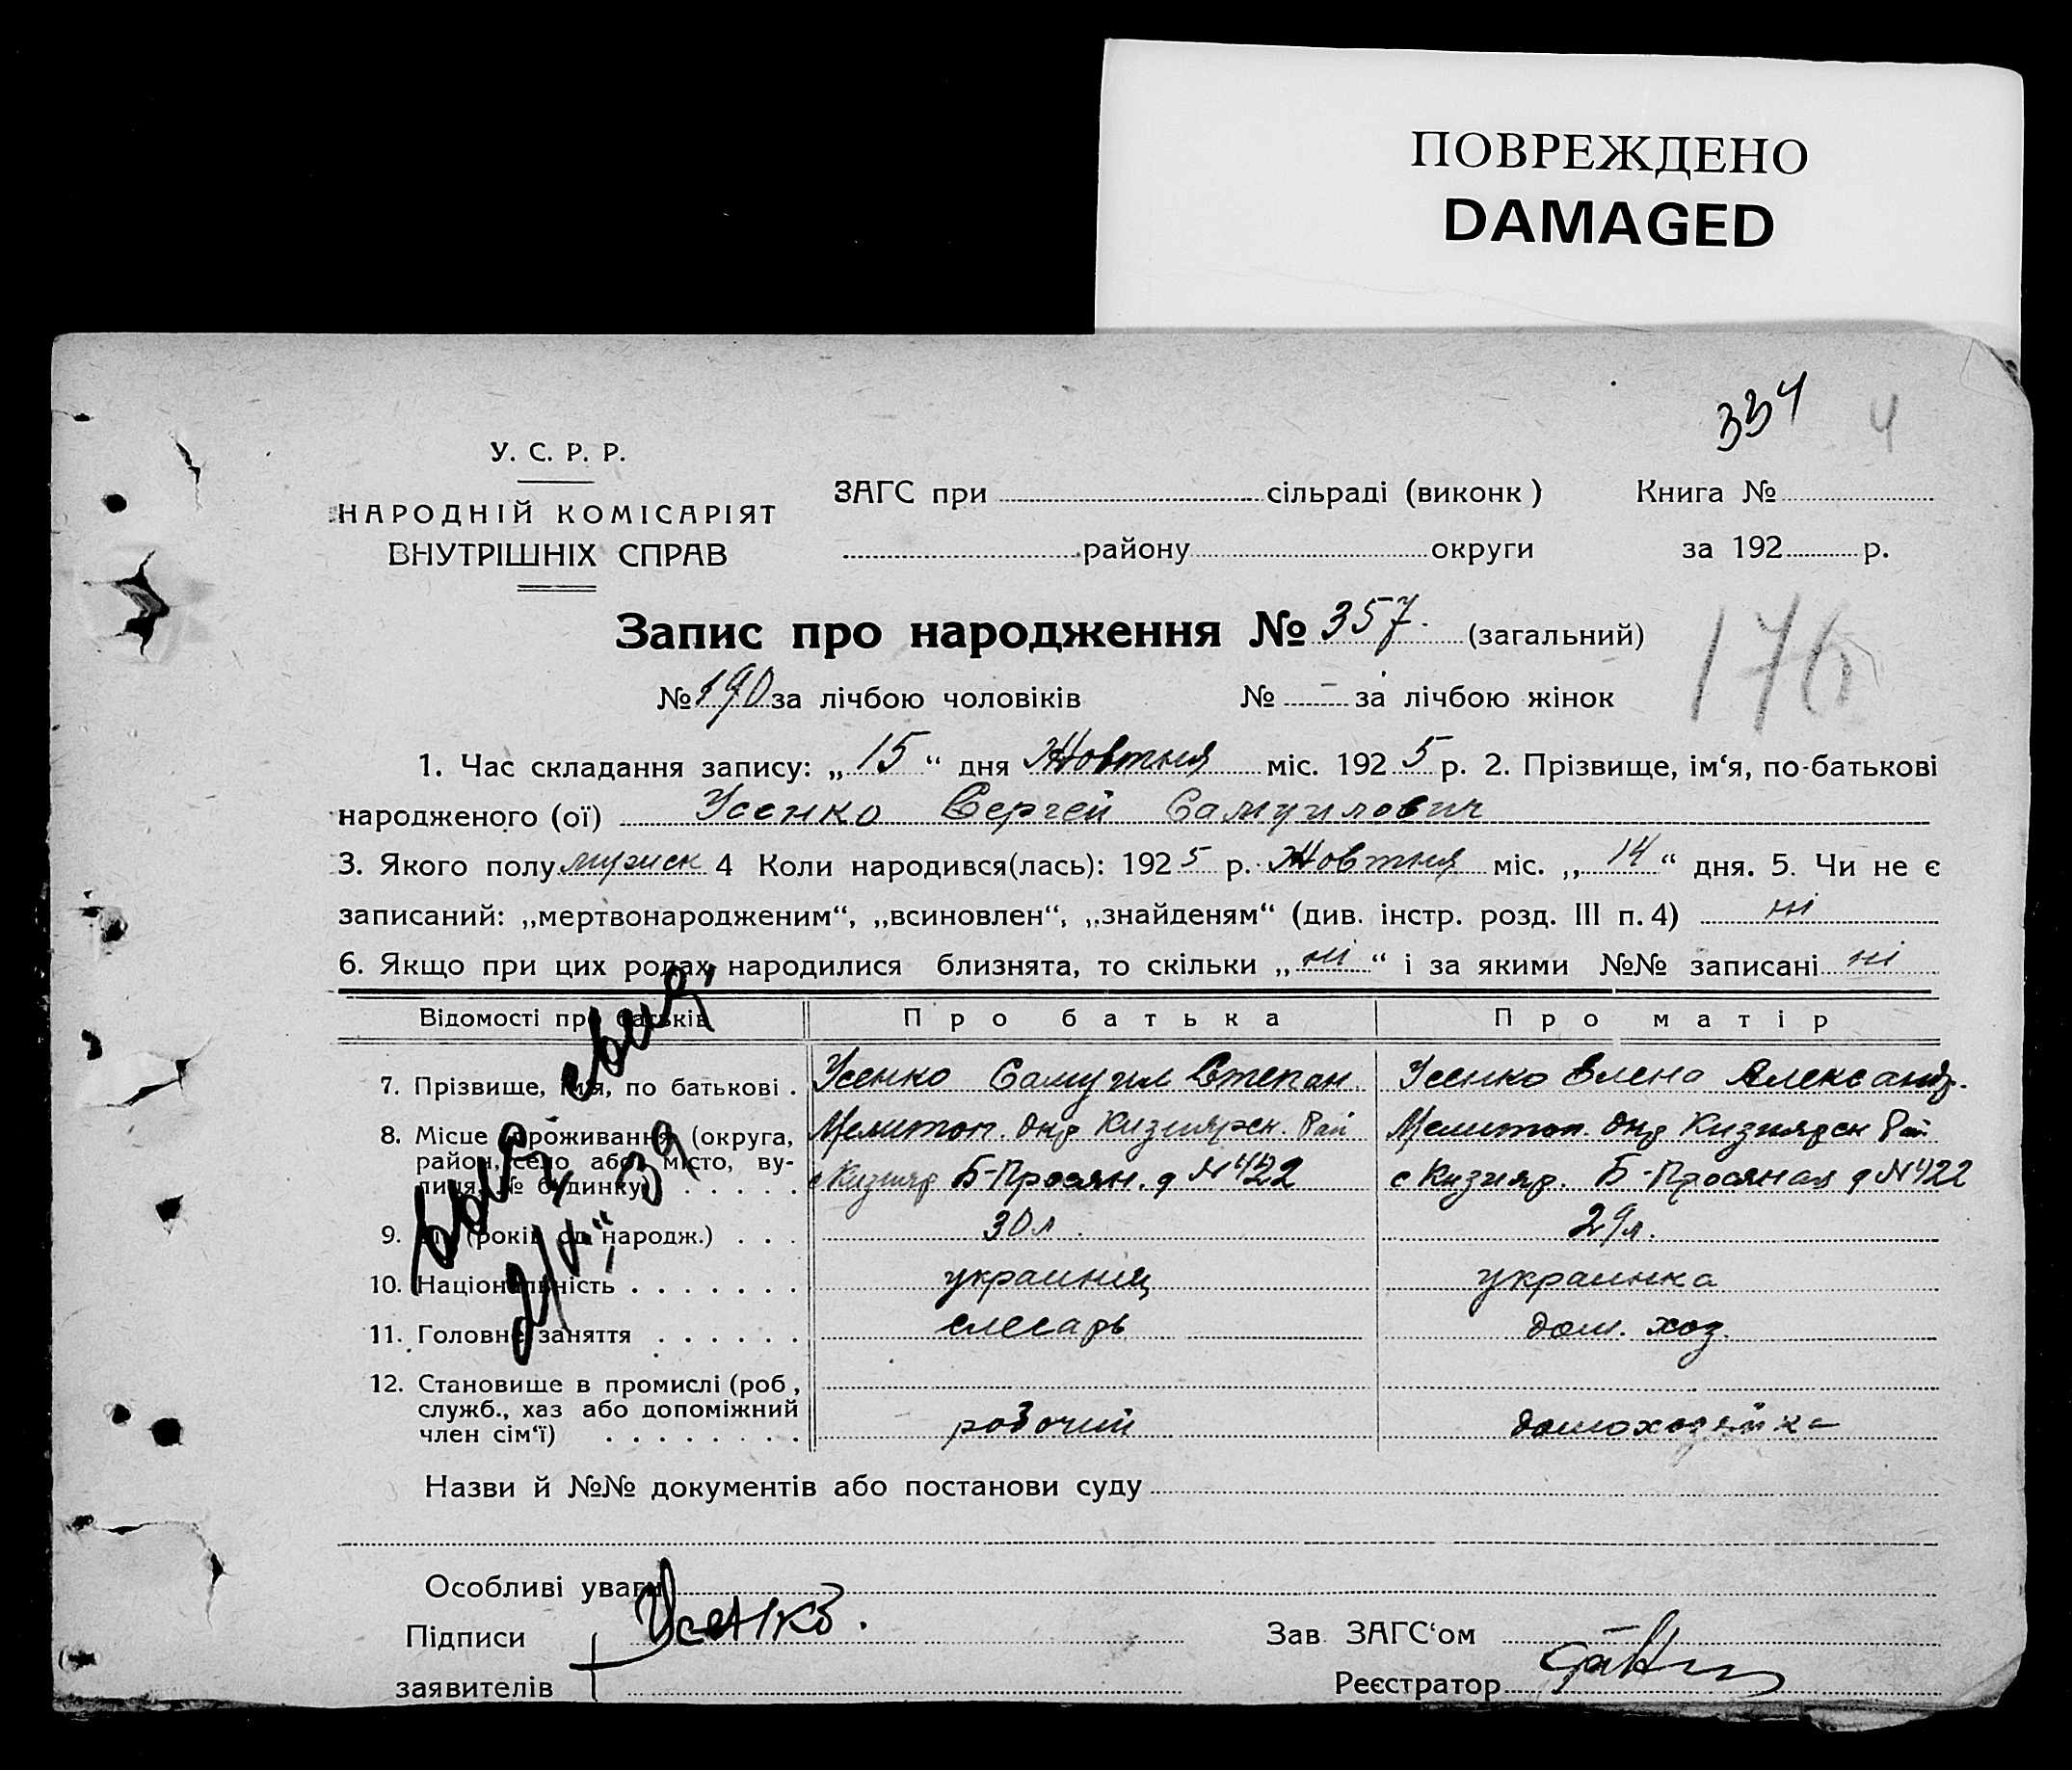 ПОВРЕЖДЕНО
DAMAGED
334 4
У. С. Р. Р.
НАРОДНІЙ КОМІСАРІЯТ
ВНУТРІШНІХ СПРАВ
ЗАГС при сільраді (виконк) Книга №
району округи за 192 р.
Запис про народження № 357. (загальний)
176
№ 190 за лічбою чоловіків № – за лічбою жінок
1. Час складання запису: „15“ дня Жовтня міс. 1925 р. 2. Прізвище, ім‘я, по-батькові
народженого (ої) Усенко Сергей Самуилович
3. Якого полу мужск 4 Коли народився(лась): 1925 р. Жовтня міс. „14“ дня. 5. Чи не є
записаний: „мертвонародженим“, „всиновлен“, „знайденям“ (див. інстр. розд. III п. 4) ні
6. Якщо при цих родах народилися близнята, то скільки „ні“ і за якими №№ записані ні
Відомості про батьків Про батька Про матір
7. Прізвище, ім‘я, по батькові . Усенко Самуил Степан. Усенко Елена Александр.
8. Місце проживання (округа, Мелитоп. Кизиярск. Рай Мелитоп. Кизиярск Рай
район, село або місто, ву-
лиця, № будинку . . . . . с Кизияр Б-Просян. д N 422 с Кизияр. Б-Просяная д N 422
9. Вік (років од народж.) . . . 30 л. 29 л.
10. Національність . . . . . . . украинец украинка
11. Головне заняття . . . . . . слесарь дом. хоз.
12. Становище в промислі (роб,
служб., хаз або допоміжний
член сім‘ї) . . . . . . . . робочий домохозяйка
Назви й №№ документів або постанови суду
Особливі уваги
Підписи Усенко. Зав ЗАГС‘ом
заявителів Реєстратор